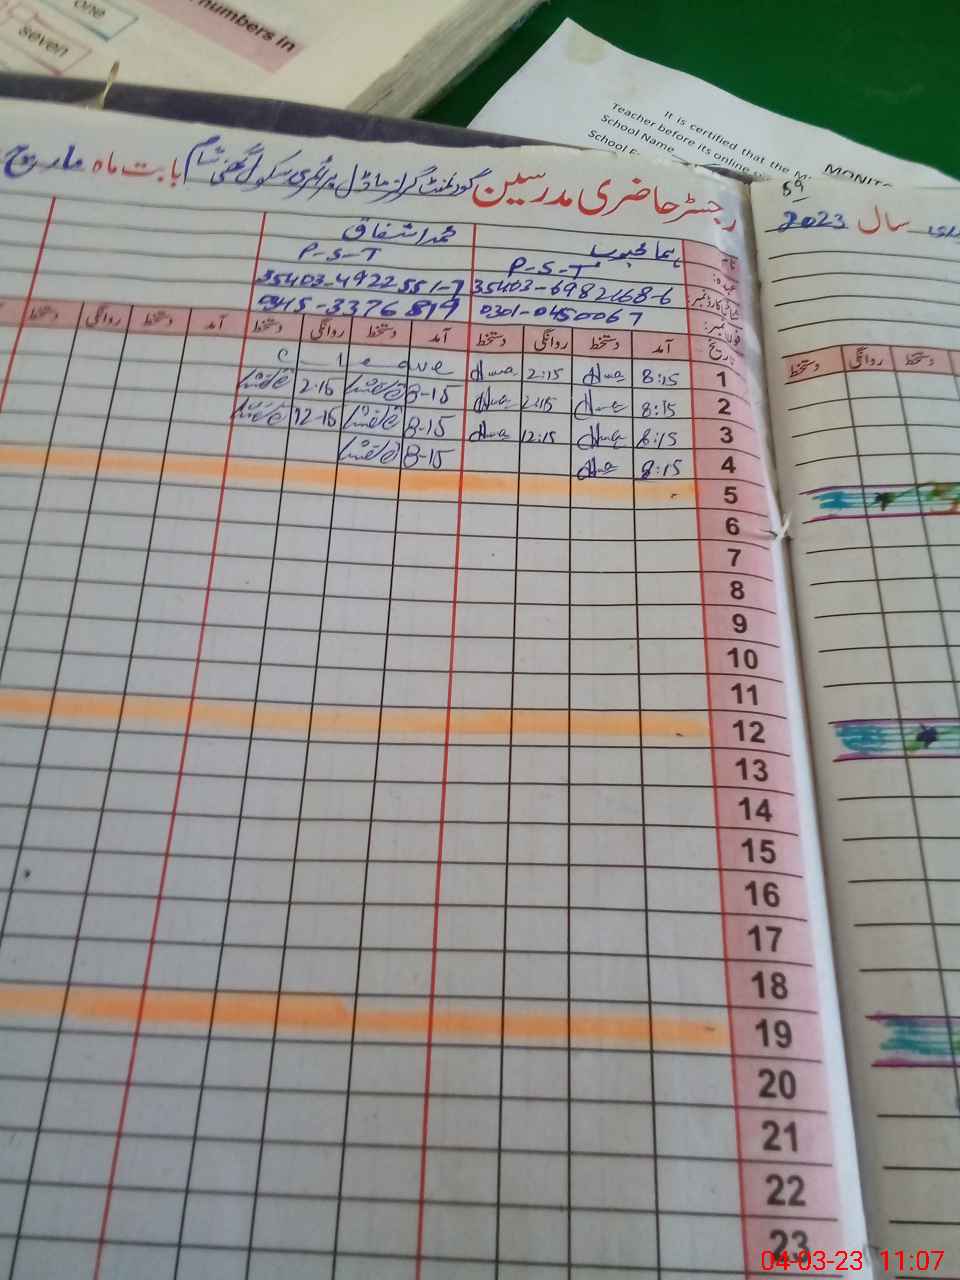 one
numbers in
seven
It is certified that the
MONIT
Teacher before its online
School Name
School
رجسٹر حاضری مدرسین گورنمنٹ گرلز ماڈل پرائمری سکول بابت ماہ مارچ
59
سال 2023
نام
ہما محبوب
محمد اشفاق
عہدہ:
P-S-T
P-S-T
35403-6982168-6
35403-4922551-7
فون نمبر:
0301-0450067
0345-3376819
تاریخ آمد دستخط روانگی دستخط آمد دستخط روانگی دستخط آمد دستخط روانگی دستخط
دستخط روانگی دستخط
1 8:15 Huma 2:15 Huma C-leave
2 8:15 Huma 2:15 Huma 8-15 2-16
3 8:15 Huma 12:15 Huma 8-15 12-16
4 8:15 Huma 8-15
5
6
7
8
9
10
11
12
13
14
15
16
17
18
19
20
21
22
23
04-03-23 11:07